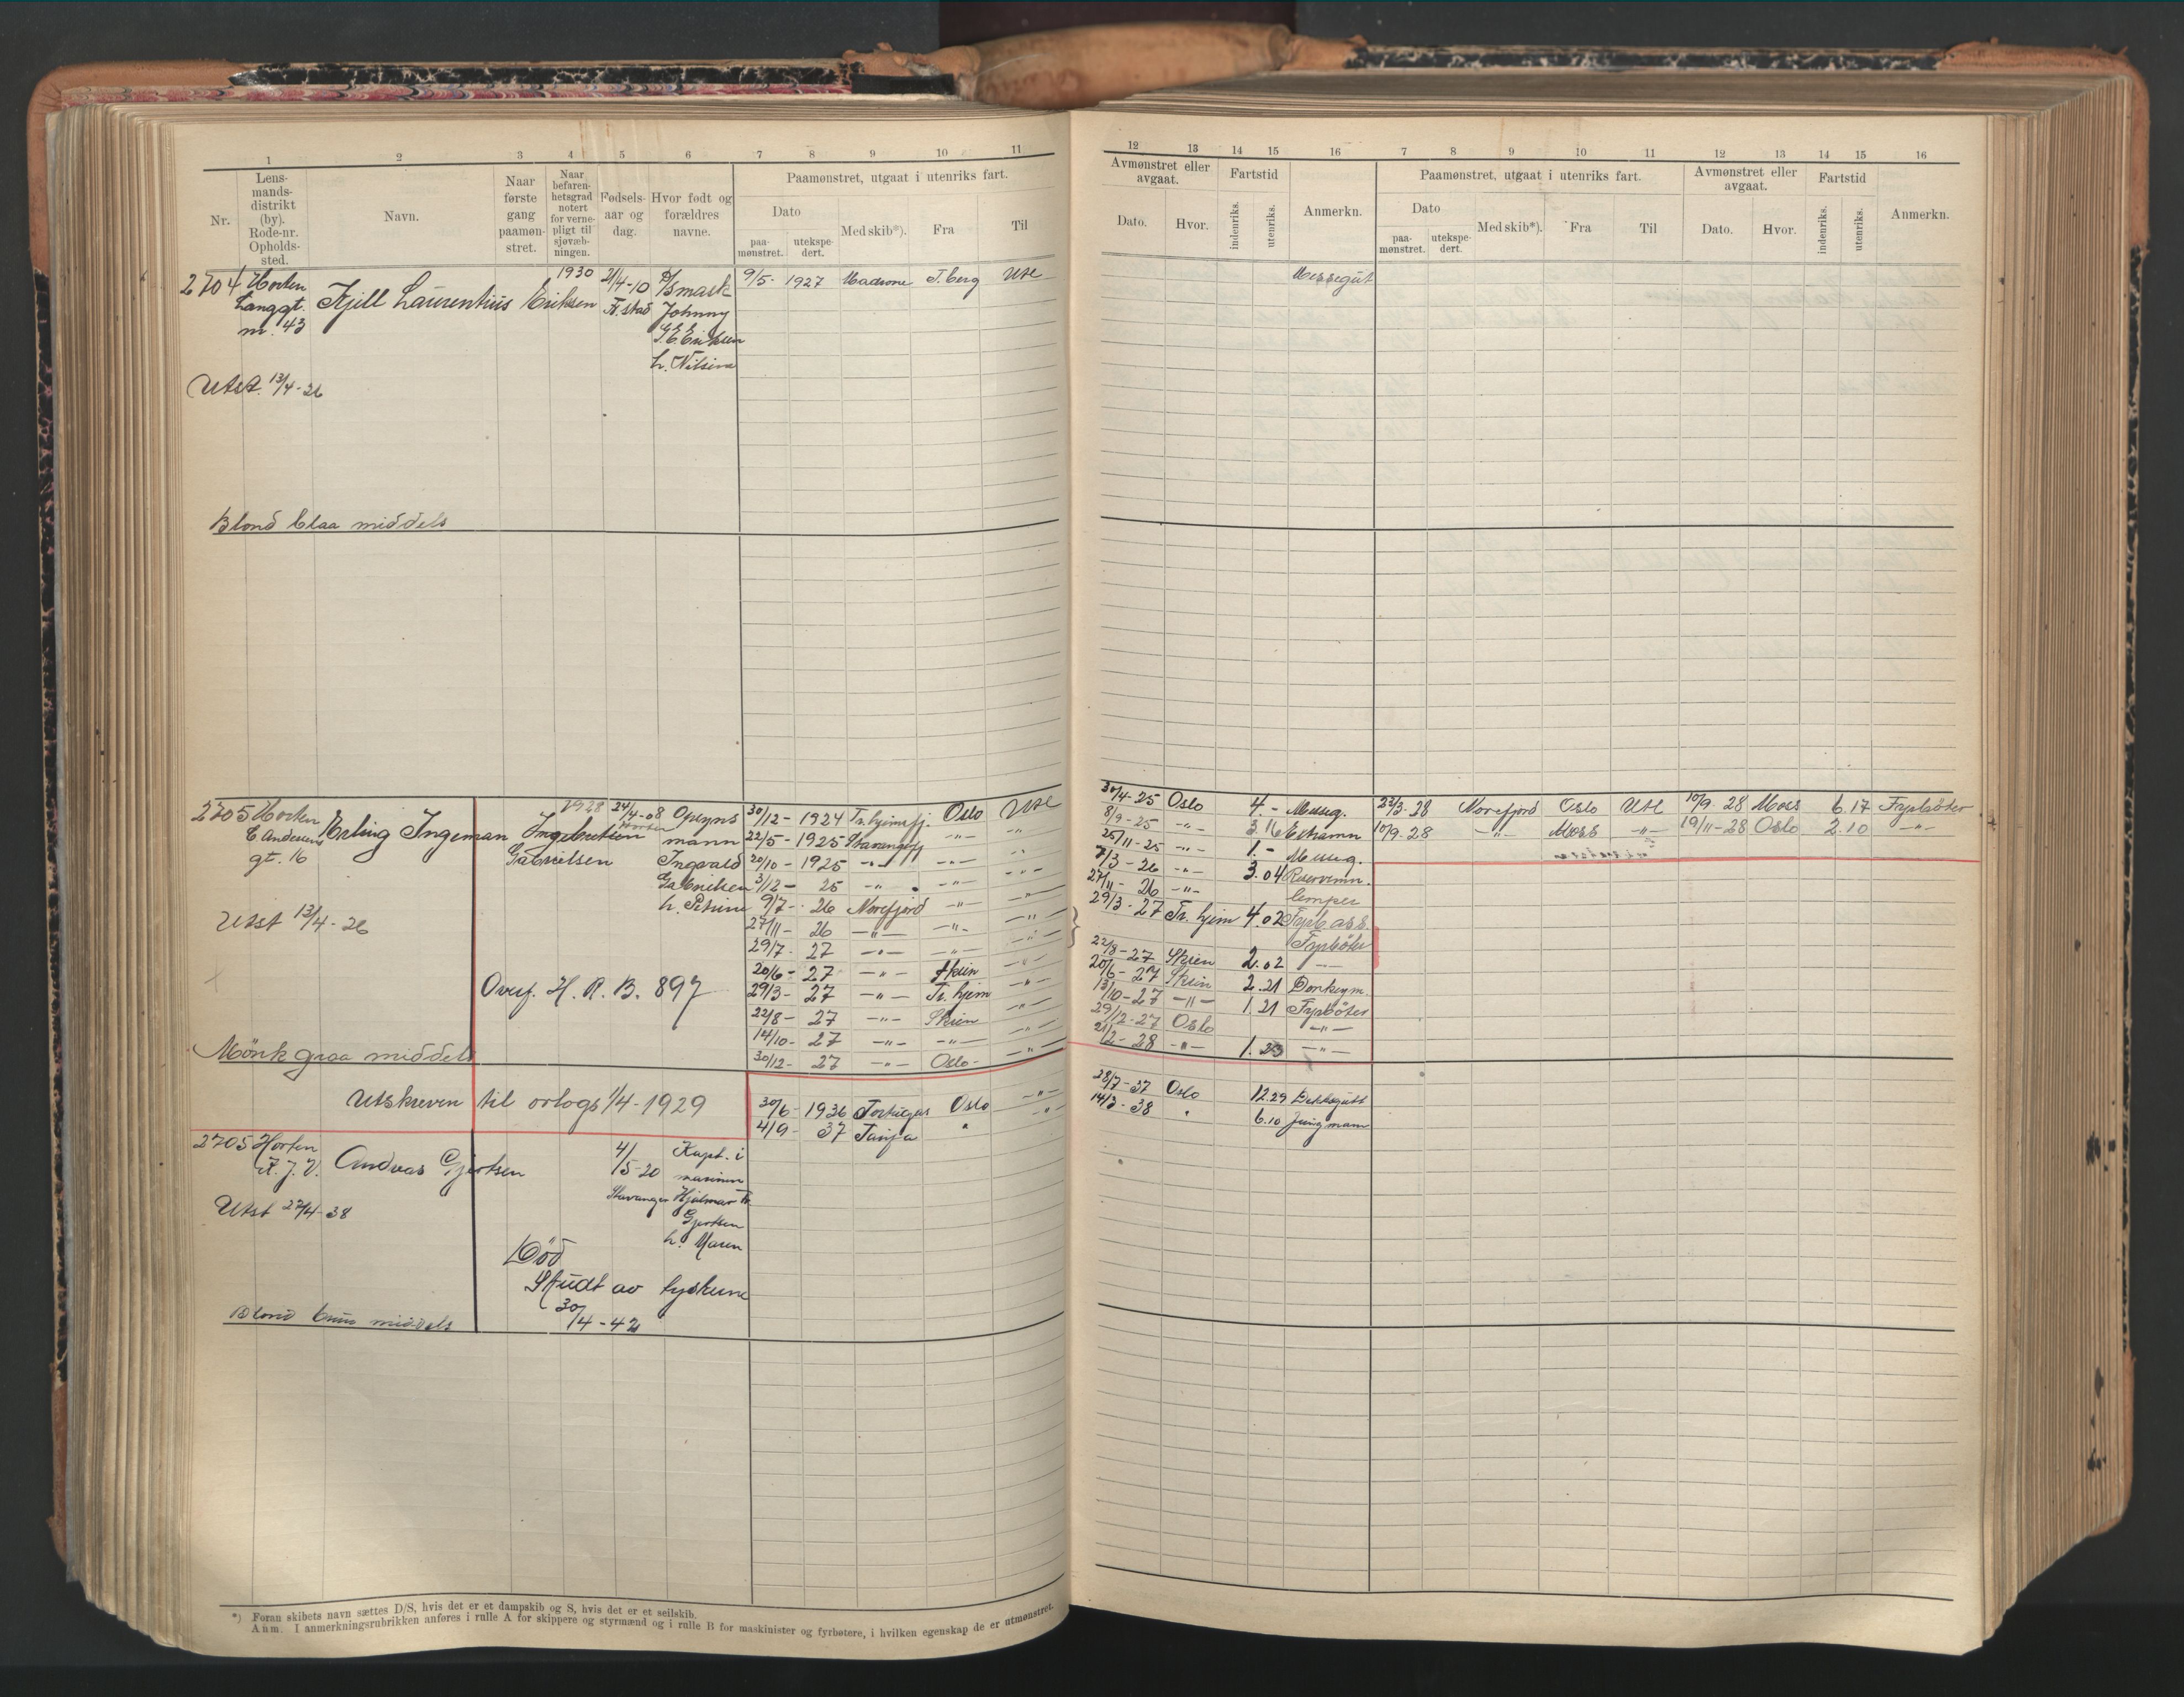 1 2 3 4 5 6 7 8 9 10 11
Nr.
Lens-
mands-
distrikt
(by).
Rode-nr.
Opholds-
sted.
Navn.
Naar
første
gang
paamøn-
stret.
Naar
befaren-
hetsgrad
notert
for verne-
pligt til
sjøvæb-
ningen.
Fødsels-
aar og
dag.
Hvor født og
forældres
navne.
Paamønstret, utgaat i utenriks fart.
Dato
paa-
mønstret.
utekspe-
dert.
Med skib*).
Fra
Til
2704 Horten
Langgt.
nr. 43
Kjell Laurentius Eriksen
1930
21/4-10
F.stad
Johnny
Eriksen
h. Nilsine
9/5- 1927 Madrone T.berg Utl
Utst. 13/4-26
Blond blaa middels
2705 Horten
C. Andersens
gt. 16
Erling Ingeman Ingebretsen
Gabrielsen
1928
24/4-08
Horten
Opsyns
mann
Ingvald
Gabrielsen
h. Petrine
30/12- 1924 Tr.hjemsfj. Oslo Utl
22/5- 1925 Stavangerfj -"- "
20/10- 1925 -"- -"- "
3/12- 25 -"- -"- -"-
9/7- 26 Norefjord -"- -"-
27/11- 26 -"- -"- -"-
29/7- 27 -"- -"- -"-
20/6- 27 -"- Skien -"-
29/3- 27 -"- Tr.hjem -"-
22/8- 27 -"- Skien -"-
14/10- 27 -"- -"- -"-
30/12- 27 -"- Oslo- -"-
Utst 13/4-26
Overf. H. R. B. 897
Mörk graa middels
Utskreven til orlogs 1/4-1929
30/6- 1936 Tortugas Oslo -"-
4/9- 37 Taifa " "
2705 Horten
K. J. V.
Andreas Gjertsen
4/5-20
Stavanger
Kapt. i
marinen
Hjalmar Fr.
Gjertsen
h. Maren
Utst 27/4-38
Död
Skudt av tyskerne
30/4-42
Blond brun middels
*) Foran skibets navn sættes D/S, hvis det er et dampskib og S, hvis det er et seilskib.
Anm. I anmerkningsrubrikken anføres i rulle A for skippere og styrmænd og i rulle B for maskinister og fyrbøtere, i hvilken egenskap de er utmønstret.
12 13 14 15 16 7 8 9 10 11 12 13 14 15 16
Avmønstret eller
avgaat.
Dato. Hvor.
Fartstid
indenriks. utenriks.
Anmerkn.
Paamønstret, utgaat i utenriks fart.
Dato
paa-
mønstret.
utekspe-
dert.
Med skib*).
Fra
Til
Avmønstret eller
avgaat.
Dato. Hvor.
Fartstid
indenriks. utenriks.
Anmerkn.
Messegut
30/4-25 Oslo 4.- Messg. 22/3-28 Norefjord Oslo Utl 10/9-28 Moss 6.17 Fyrböter
8/9-25 -"- 3.16 10/9-28 -"- Moss -"- 19/11-28 Oslo 2.10 -"-
25/11-25 -"- 1.- Messg.
7/3-26 -"- 3.04 Reservemn.
27/11-26 -"- lemper
29/3-27 Tr.hjem 4.02 Fyrb.ass.
Fyrböter
22/8-27 Skien 2.02 -"-
20/6-27 Skien 2.21 Donkeym.
13/10-27 -"- 1.21 Fyrböter
29/12-27 Oslo -"-
21/2-28 -"- 1.23 -"-
28/7-37 Oslo 12.29 Dekksgutt
14/3-38 " 6.10 Jungmann